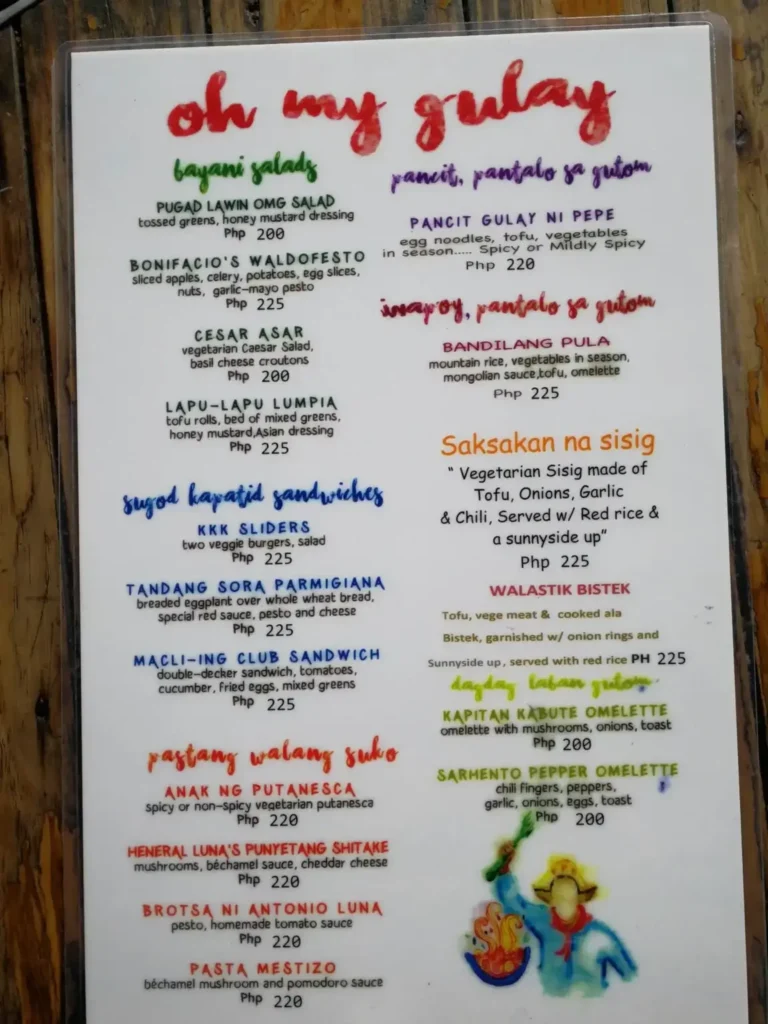 oh my gulay
bayani salads
PUGAD LAWIN OMG SALAD
tossed greens, honey mustard dressing
Php 200
BONIFACIO'S WALDOFESTO
sliced apples, celery, potatoes, egg slices,
nuts, garlic-mayo pesto
Php 225
CESAR ASAR
vegetarian Caesar Salad,
basil cheese croutons
Php 200
LAPU-LAPU LUMPIA
tofu rolls, bed of mixed greens,
honey mustard,Asian dressing
Php 225
sugod kapatid sandwiches
KKK SLIDERS
two veggie burgers, salad
Php 225
TANDANG SORA PARMIGIANA
breaded eggplant over whole wheat bread,
special red sauce, pesto and cheese
Php 225
MACLI-ING CLUB SANDWICH
double-decker sandwich, tomatoes,
cucumber, fried eggs, mixed greens
Php 225
pastang walang suko
ANAK NG PUTANESCA
spicy or non-spicy vegetarian putanesca
Php 220
HENERAL LUNA'S PUNYETANG SHITAKE
mushrooms, béchamel sauce, cheddar cheese
Php 220
BROTSA NI ANTONIO LUNA
pesto, homemade tomato sauce
Php 220
PASTA MESTIZO
béchamel mushroom and pomodoro sauce
Php 220
pancit, pantalo sa gutom
PANCIT GULAY NI PEPE
egg noodles, tofu, vegetables
in season..... Spicy or Mildly Spicy
Php 220
inapoy, pantalo sa gutom
BANDILANG PULA
mountain rice, vegetables in season,
mongolian sauce,tofu, omelette
Php 225
Saksakan na sisig
" Vegetarian Sisig made of
Tofu, Onions, Garlic
& Chili, Served w/ Red rice &
a sunnyside up"
Php 225
WALASTIK BISTEK
Tofu, vege meat & cooked ala
Bistek, garnished w/ onion rings and
Sunnyside up, served with red rice PH 225
dagdag laban gutom
KAPITAN KABUTE OMELETTE
omelette with mushrooms, onions, toast
Php 200
SARHENTO PEPPER OMELETTE
chili fingers, peppers,
garlic, onions, eggs, toast
Php 200